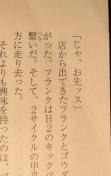 「じゃ、お先ッス」
店から出てきたフランクとゴウダ
がった。フランクはH2のキックペ
繋いだ。そして、2サイクルの甲
方に走り去った。
それよりも興味を持ったのは、